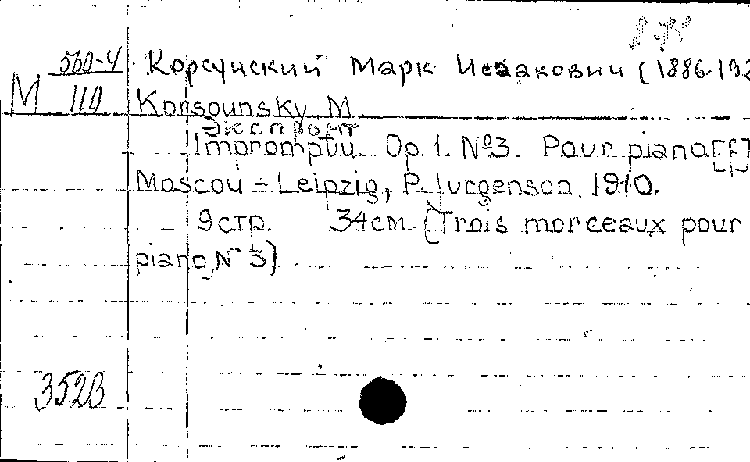 560-4 Корсунский Марк Исаакович (1886-192
М 110 Korsounsky M.
Экспромт
Impromptu Op. 1. №3. Pour piano [F]
Moscou - Leipzig, P. Jurgenson, 1910.
9 стр. 34 см. (Trois morceaux pour
piano, N° 3)